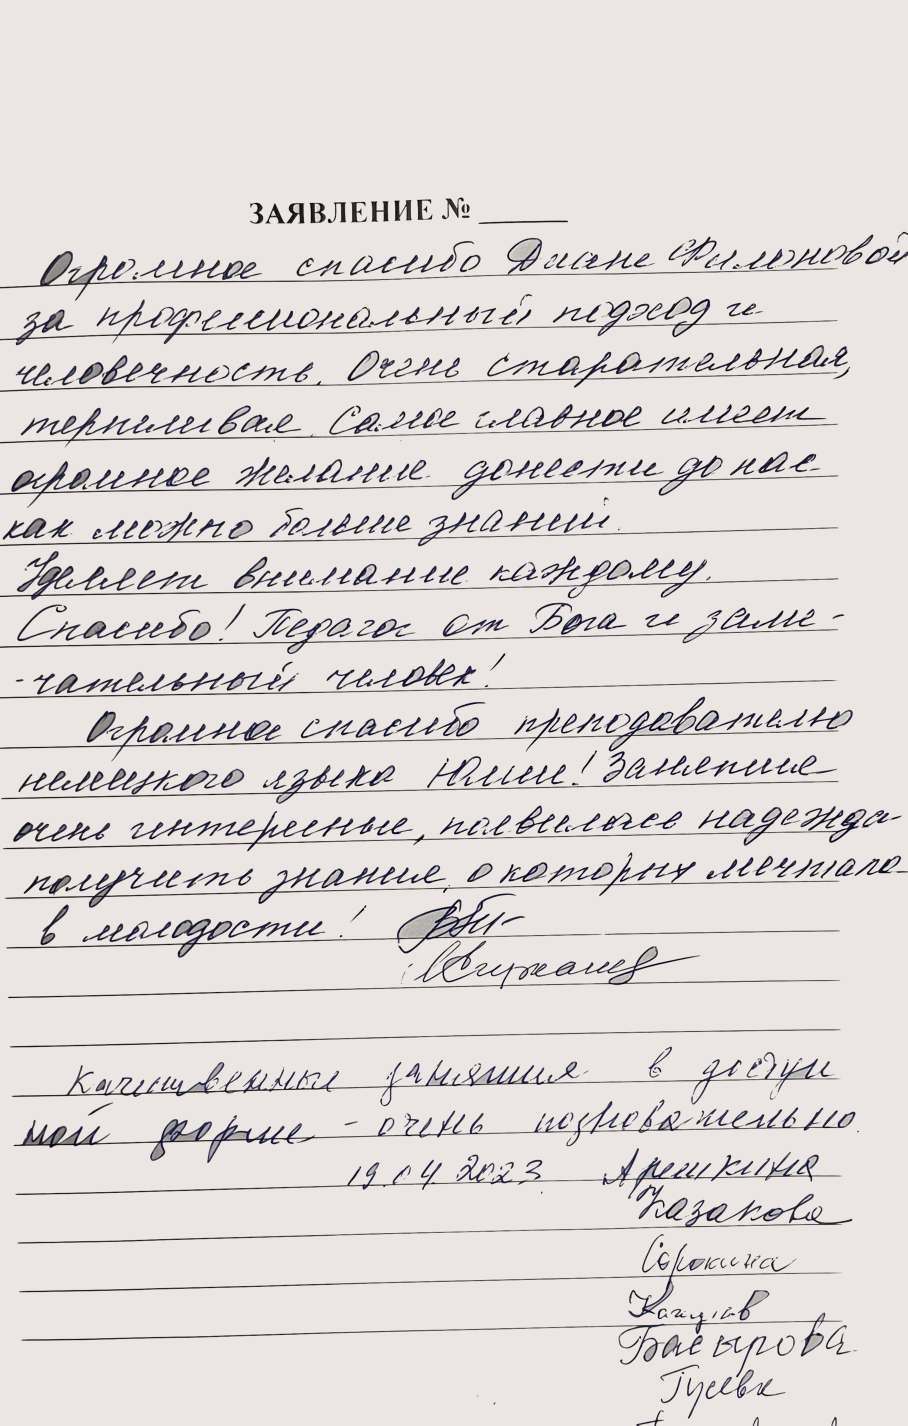 ЗАЯВЛЕНИЕ № ______
Огромное спасибо Диане Филоновой
за профессиональный подход и
человечность. Очень старательная,
терпеливая. Самое главное имеет
огромное желание донести до нас
как можно больше знаний.
Уделяет внимание каждому.
Спасибо! Педагог от Бога и заме-
-чательный человек!
Огромное спасибо преподавателю
немецкого языка Юлии! Занятия
очень интересные, появилась надежда
получить знания, о которых мечтала
в молодости!
Качественные занятия в доступ
ной форме - очень познавательно.
19.04.2023 Арешкина
Казакова
Сорокина
Басырова
Гуева